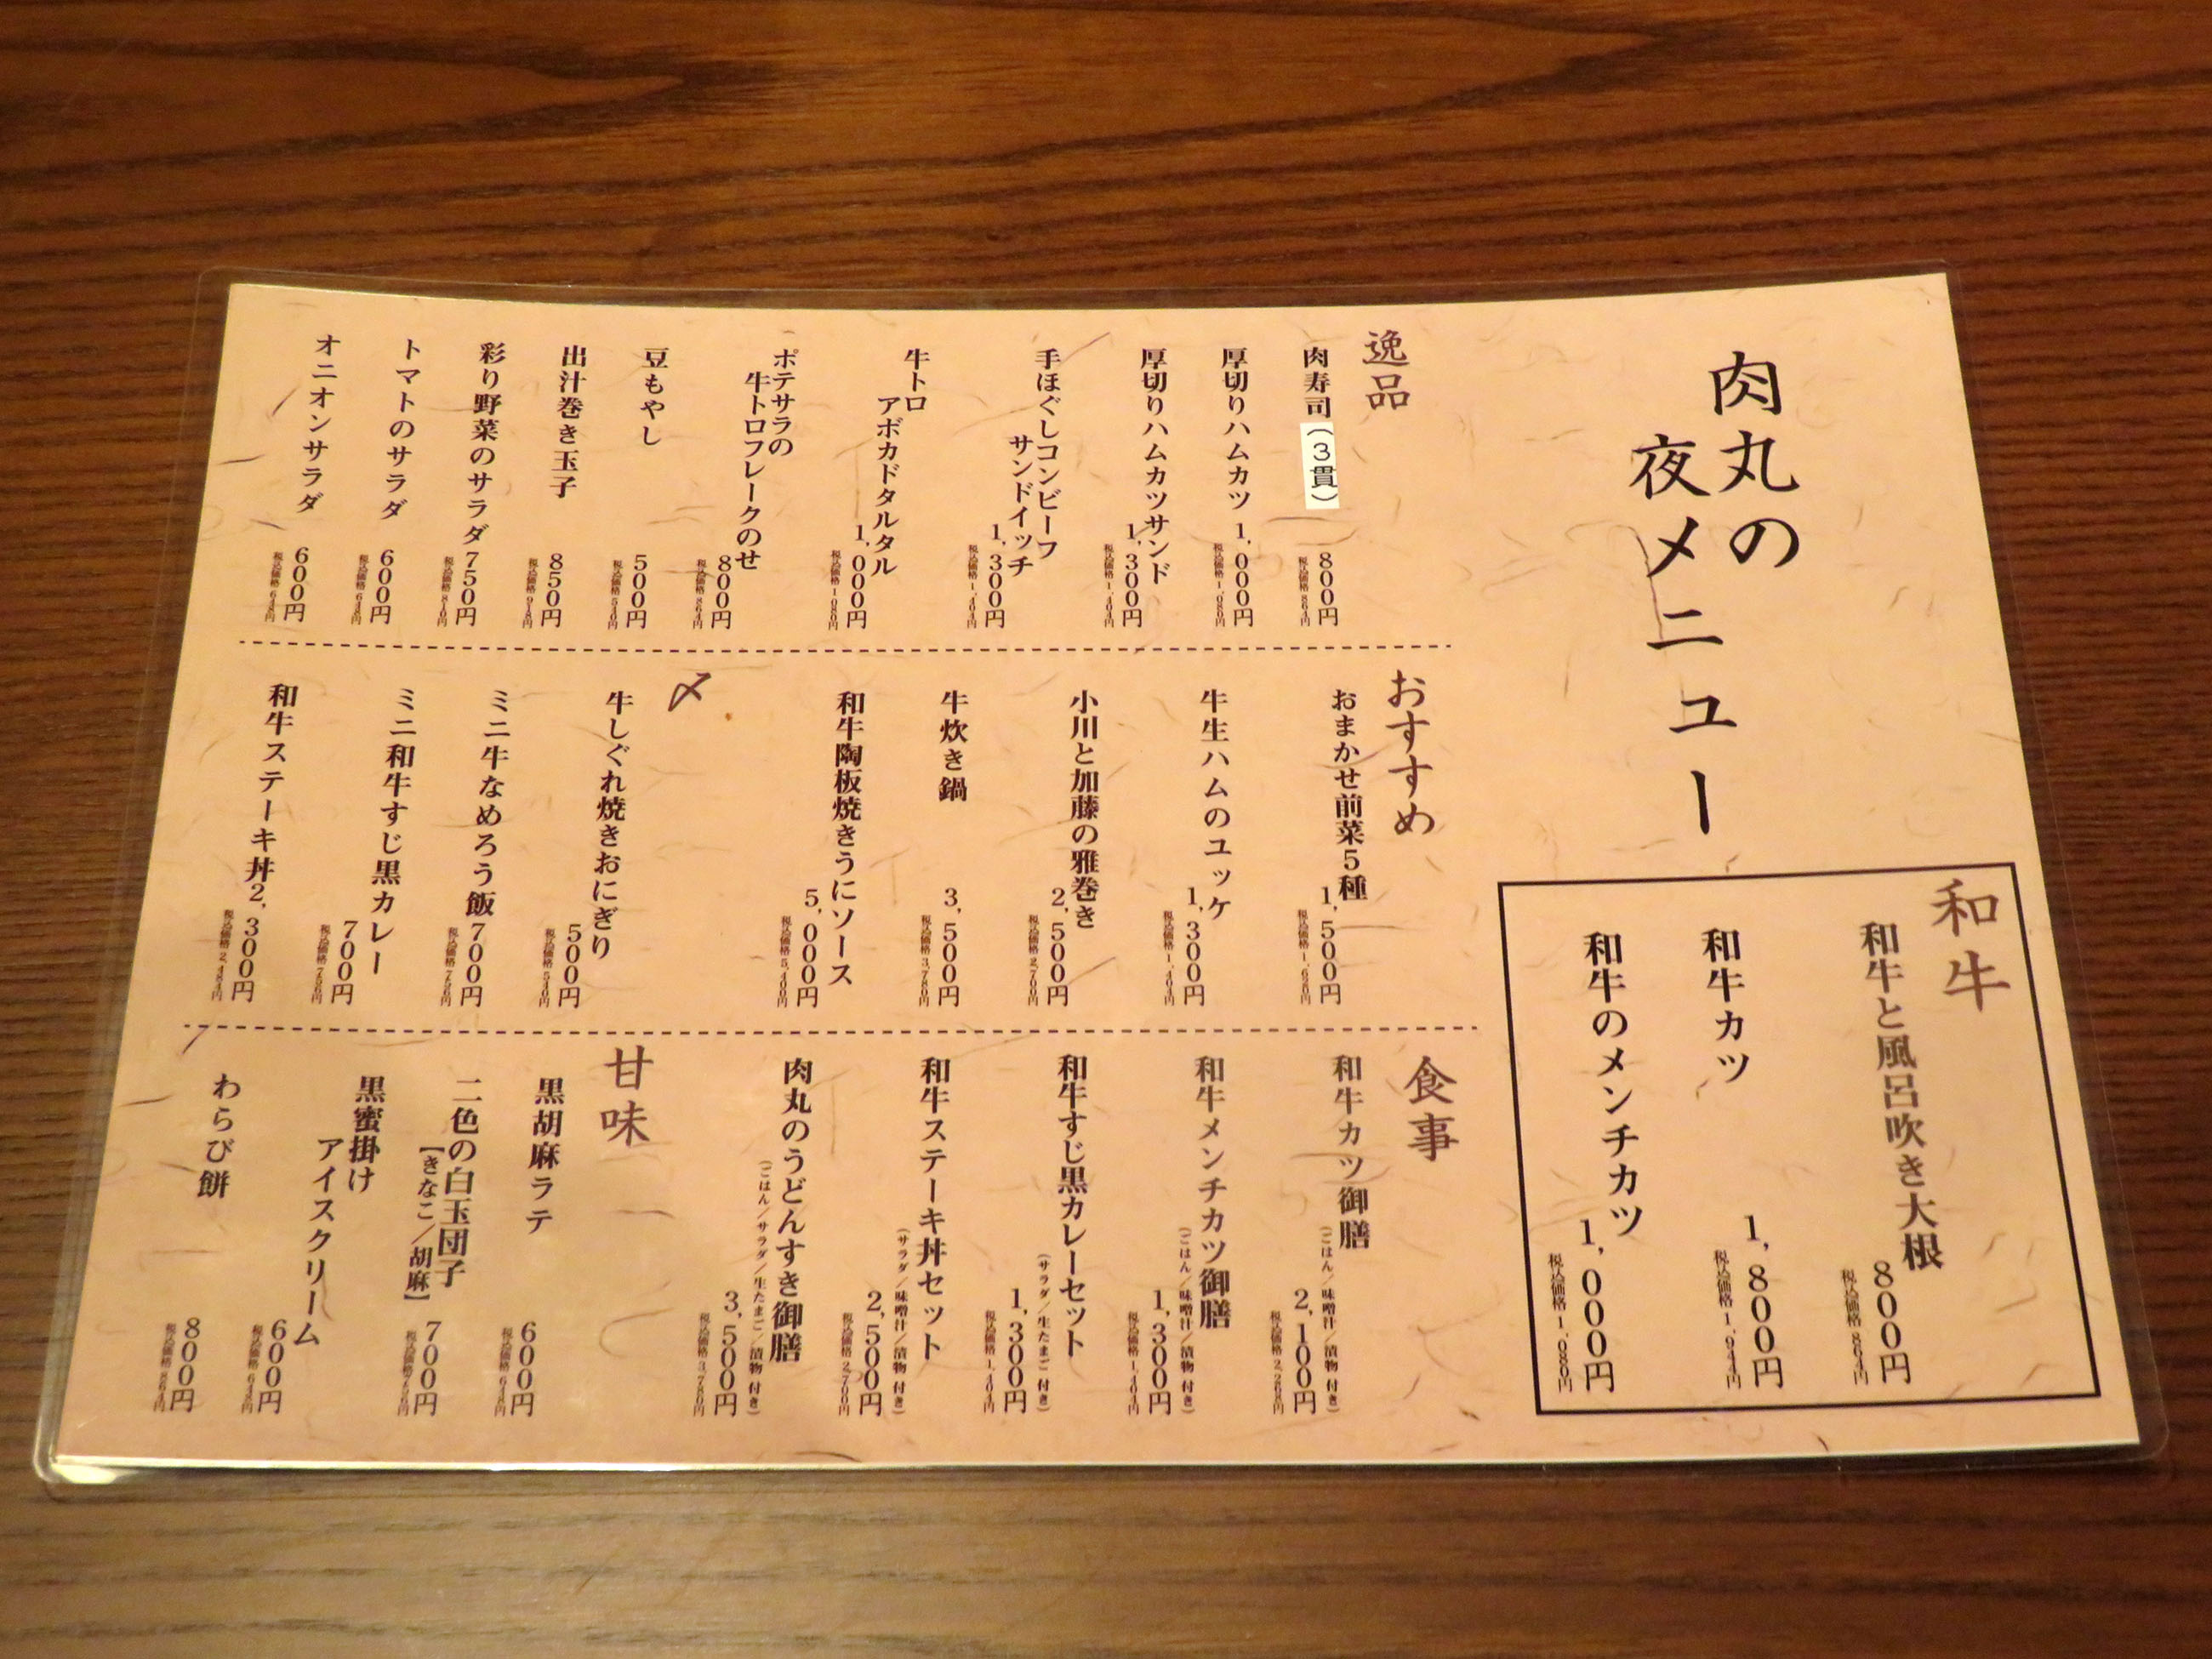 肉丸の
夜メニュー
和牛
和牛と風呂吹き大根
800円
税込価格864円
和牛カツ
1,800円
税込価格1,944円
和牛のメンチカツ
1,000円
税込価格1,080円
逸品
肉寿司(3貫)
800円
税込価格864円
厚切りハムカツ
1,000円
税込価格1,080円
厚切りハムカツサンド
1,300円
税込価格1,404円
手ほぐしコンビーフ
サンドイッチ
1,300円
税込価格1,404円
牛トロ
アボカドタルタル
1,000円
税込価格1,080円
ポテサラの
牛トロフレークのせ
800円
税込価格864円
豆もやし
500円
税込価格540円
出汁巻き玉子
850円
税込価格918円
彩り野菜のサラダ
750円
税込価格810円
トマトのサラダ
600円
税込価格648円
オニオンサラダ
600円
税込価格648円
おすすめ
おまかせ前菜5種
1,500円
税込価格1,620円
牛生ハムのユッケ
1,300円
税込価格1,404円
小川と加藤の雅巻き
2,500円
税込価格2,700円
牛炊き鍋
3,500円
税込価格3,780円
和牛陶板焼きうにソース
5,000円
税込価格5,400円
〆
牛しぐれ焼きおにぎり
500円
税込価格540円
ミニ牛なめろう飯
700円
税込価格756円
ミニ和牛すじ黒カレー
700円
税込価格756円
和牛ステーキ丼
2,300円
税込価格2,484円
食事
和牛カツ御膳
(ごはん/味噌汁/漬物 付き)
2,100円
税込価格2,268円
和牛メンチカツ御膳
(ごはん/味噌汁/漬物 付き)
1,300円
税込価格1,404円
和牛すじ黒カレーセット
(サラダ/生たまご 付き)
1,300円
税込価格1,404円
和牛ステーキ丼セット
(サラダ/味噌汁/漬物 付き)
2,500円
税込価格2,700円
肉丸のうどんすき御膳
(ごはん/サラダ/生たまご/漬物 付き)
3,500円
税込価格3,780円
甘味
黒胡麻ラテ
600円
税込価格648円
二色の白玉団子
【きなこ/胡麻】
700円
税込価格756円
黒蜜掛け
アイスクリーム
600円
税込価格648円
わらび餅
800円
税込価格864円